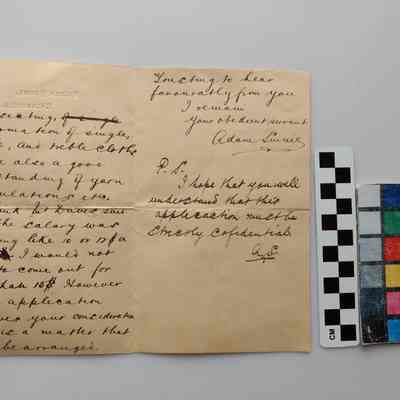 seating, of single
mation of singles,
, and treble cloths
also a good
standing of yarn
calculations etc.
the salary was
ing like 10 or
I would not
come out for
than However
application
your consideration
is a matter that
be arranged.
Trusting to hear
favourably from you
I remain
your obedient servant
Adam
P. S.
I hope that you will
understand that this
application must be
strictly confidential
A.S.
CM